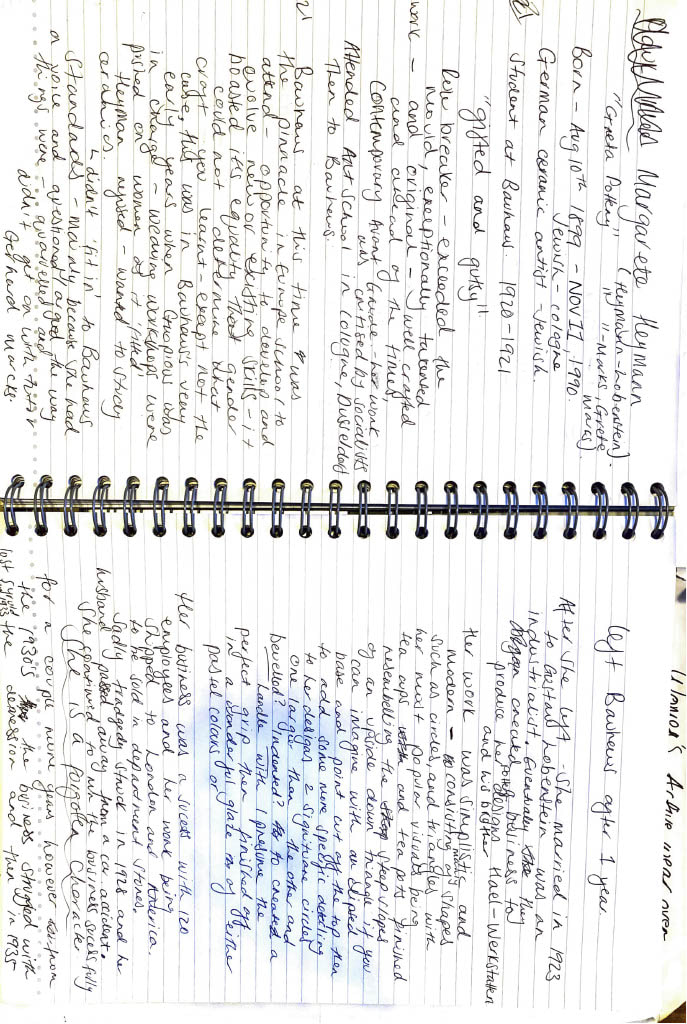 Margarete Heymann
"Greta Pottery" (Heymann-Lobenstein).
" " -Marks, Grete Marks).
Born - Aug 10th 1899 - Nov 11, 1990.
Jewish - cologne
German ceramic artist - Jewish.
Student at Bauhaus. 1920-1921
"gifted and gutsy"
Rule breaker - exceeded the
mould, exceptionally talented
work - and original - well crafted
and ahead of the times
Contemporary Avant Garde - her work
was critised by socialists
Attended Art School in Cologne, Dusseldorf
Then to Bauhaus.
Bauhaus at this time was
the pinnacle in Europe school to
attend - opportunity to develop and
evolve new or existing skills - it
boasted it's equality that gender
could not determine what
craft you learnt - except not the
case, this was in Bauhaus's very
early years when Groupious was
in charge - weaving workshops were
pushed on women at
Heyman rejected - wanted to study
ceramics.
↳ didn't 'fit in' to Bauhaus
Standards - mainly because she had
a voice and questioned/argued the way
things were - quarrelled and
didn't get on with tutor
Gerhard Marcks.
Archive
left Bauhaus after 1 year
After she left - she married in 1923
to Gustav Lobenstein was an
industrialist. Eventually they
created business to
produce her designs Hael-Werkstätten
and his brother
Her work was simplistic and
modern - consisting of shapes
such as circles, and triangles with
her most popular visuals being
tea cups and tea pots finished
resembelling the steep slopes
of an upside down triangle if you
can imagine with an eliped
base and point cut off the top then
to add some more specific detailing
to her designs 2 significant circles
one larger than the other and
bevelled? indented? to created a
handle with I presume the
perfect grip then finished off
in a wonderful glaze of either
pastel colours or
Her business was a sucess with 120
employees and her work being
shipped to London and America.
to be sold in department stores.
Sadly tragedy struck in 1928 and her
husband passed away from a car accident.
She continued to run the business sucessfully
She is a forgotten character
for a couple more years however from
the 1930s the business struggled with
the depression and then in 1935